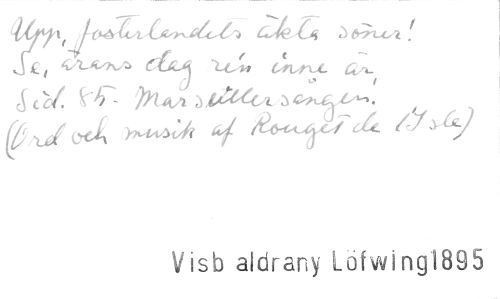 Upp, fosterlandets äkta söner!
Se, ärans dag re'n inne är,
Sid. 85. Marseillersången.
(Ord och musik af Rouget de l'Isle)
Visb aldrany Löfwing1895